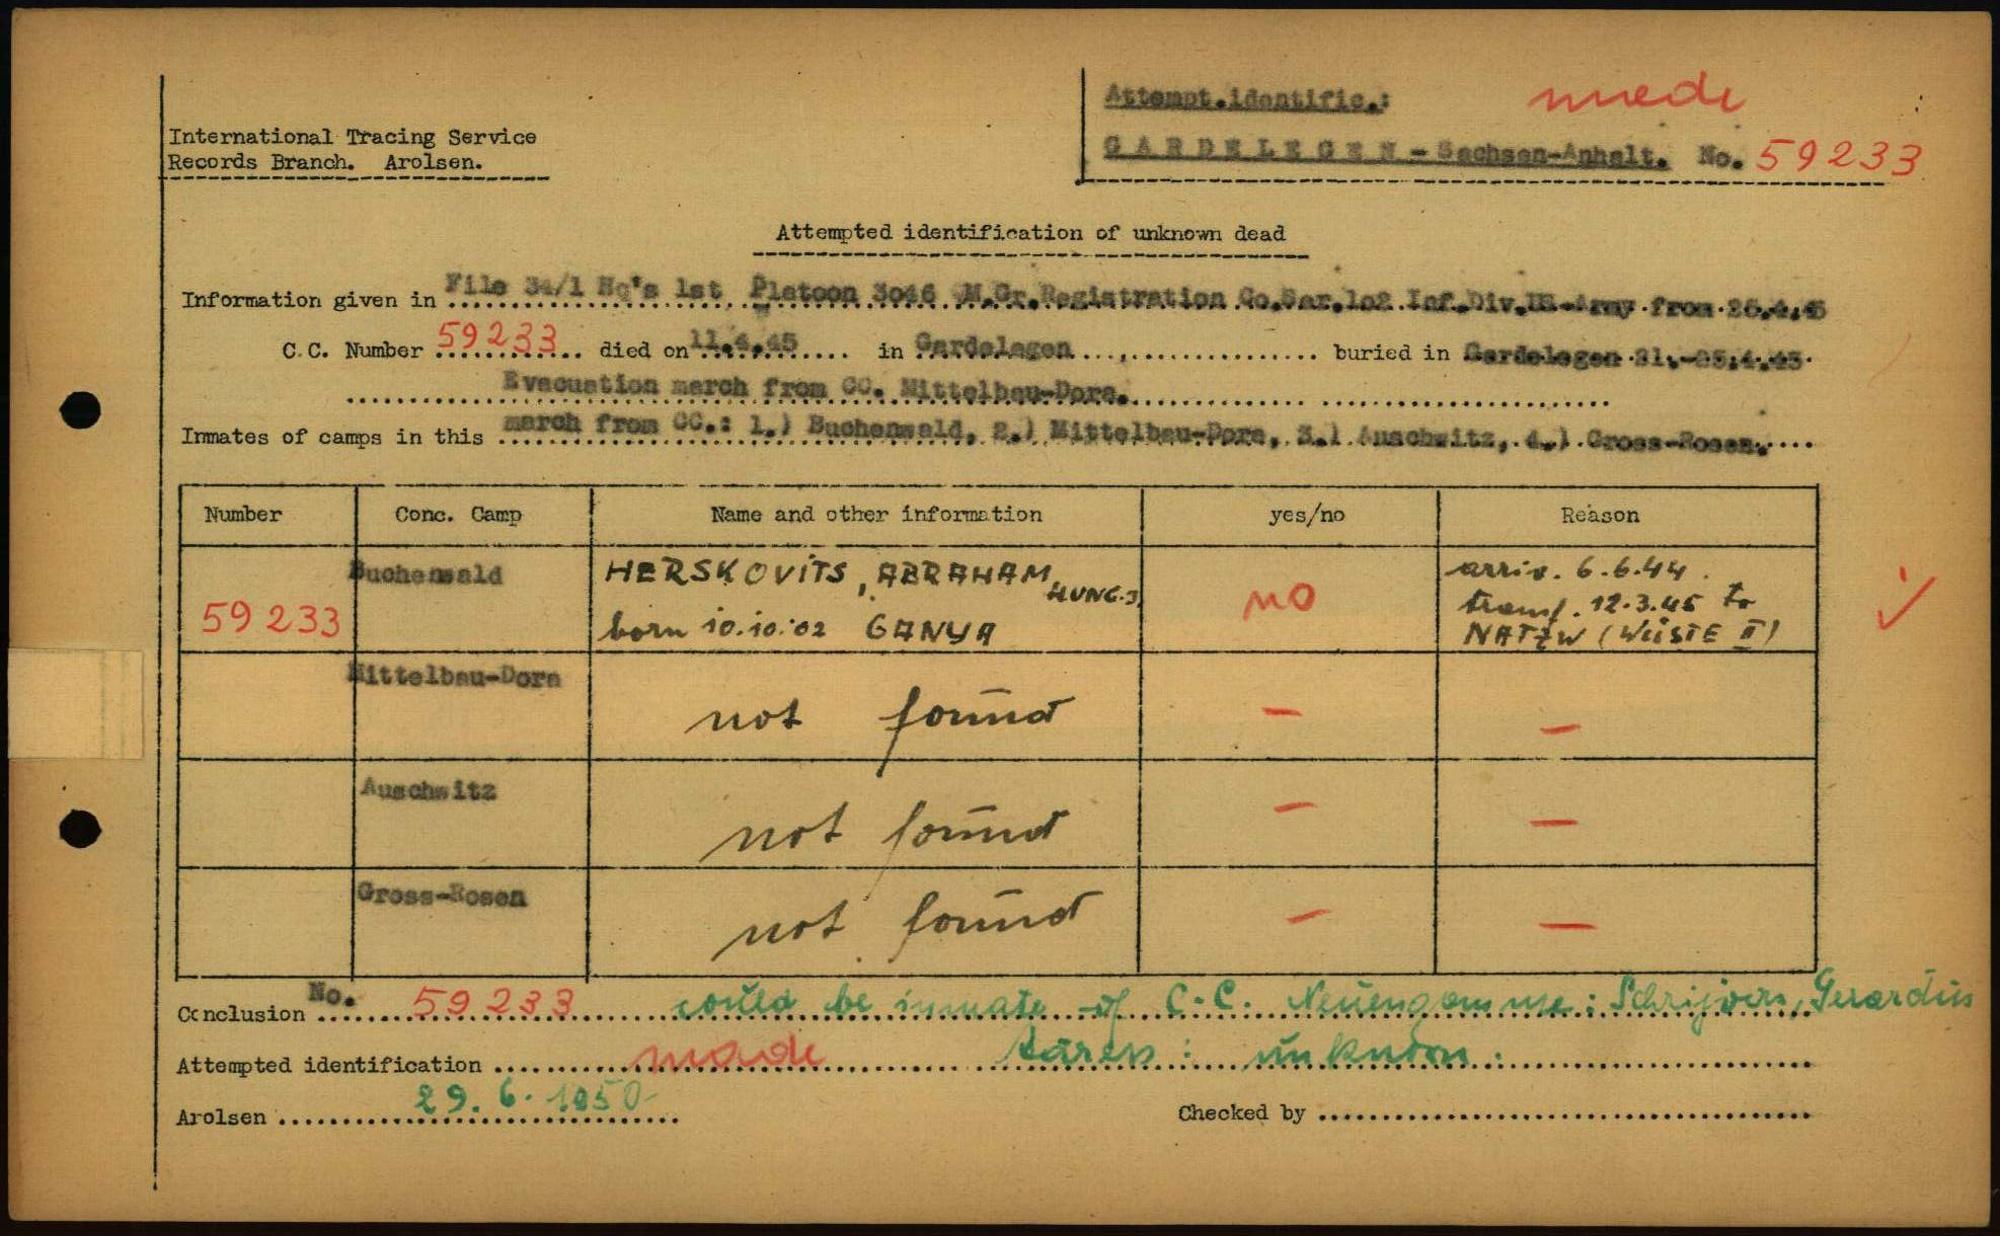 Attempt.identific.: made
International Tracing Service
Records Branch. Arolsen.
GARDELEGEN - Sachsen-Anhalt. No. 59233
Attempted identification of unknown dead
Information given in File 34/1 Hq's 1st Platoon 3046 M.Gr.Registration Co.Sar.102 Inf.Div.US-Army from 26.4.45
C.C. Number 59233 died on 11.4.45 in Gardelegen buried in Gardelegen 21.-25.4.45.
Evacuation march from CC. Mittelbau-Dora.
Inmates of camps in this march from CC.: 1.) Buchenwald, 2.) Mittelbau-Dora, 3.) Auschwitz, 4.) Gross-Rosen.
Number Conc. Camp Name and other information yes/no Reason
Buchenwald HERSKOVITS, ABRAHAM, HUNG.J. arriv. 6.6.44.
59233 born 10.10.02 GANYA no transf. 12.3.45 to
NATZW (WÜSTE II)
Mittelbau-Dora
not found — —
Auschwitz
not found — —
Gross-Rosen
not found — —
Conclusion No. 59233 could be inmate of C.C. Neuengamme: Schrijvers, Gerardus
Attempted identification made : unknown.
Arolsen 29.6.1950 Checked by